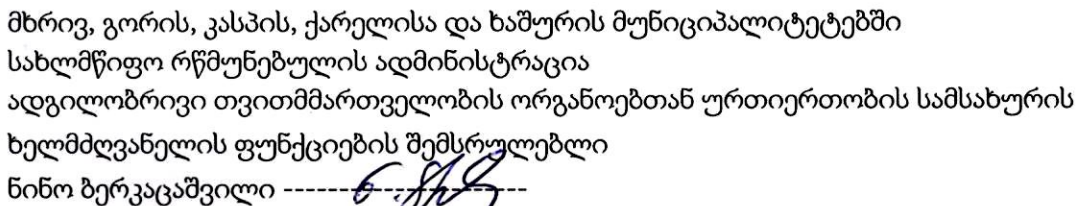 მხრივ, გორის, კასპის, ქარელისა და ხაშურის მუნიციპალიტეტებში
სახლმწიფო რწმუნებულის ადმინისტრაცია
ადგილობრივი თვითმმართველობის ორგანოებთან ურთიერთობის სამსახურის
ხელმძღვანელის ფუნქციების შემსრულებლი
ნინო ბერკაცაშვილი -----------------------